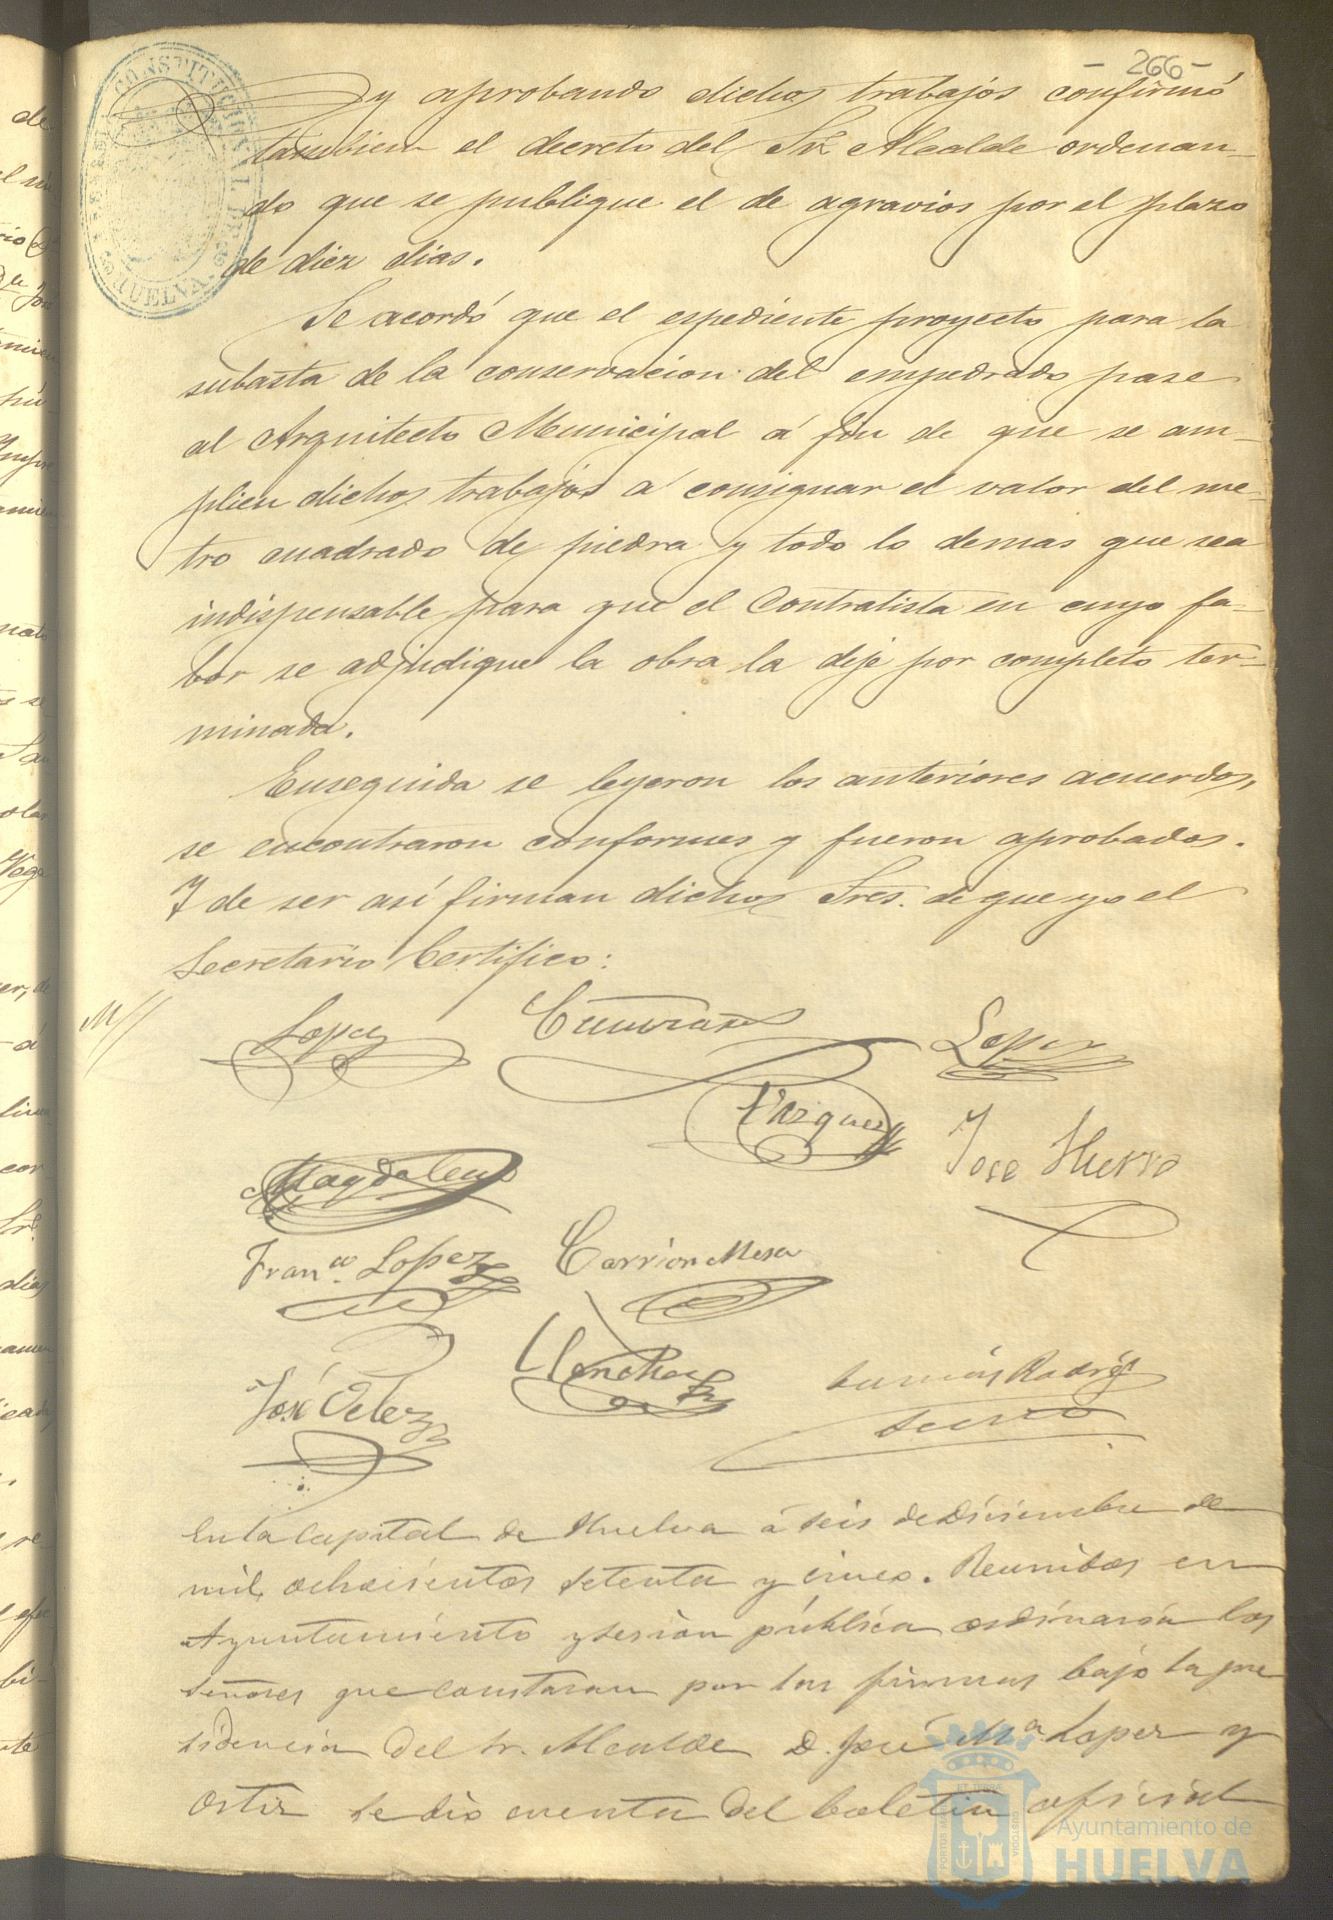 - 266 -
y aprobando dichos trabajos confirmó
tambien el decreto del Sr. Alcalde ordenan-
do que se publique el de agravios por el plazo
de diez dias.
Se acordó que el espediente proyecto para la
subasta de la conservacion del empedrado pase
al Arquitecto Municipal á fin de que se am-
plien dichos trabajos á consignar el valor del me-
tro cuadrado de piedra y todo lo demas que sea
indispensable para que el Contratista en cuyo fa-
bor se adjudique la obra la deje por completo ter-
minada.
Enseguida se leyeron los anteriores acuerdos,
se encontraron conformes y fueron aprobados.
Y de ser asi firman dichos Sres. de que yo el
Secretario Certifico:
Lopez
Lopez
Vazquez
Jose Hierro
Magdaleno
Fran.co Lopez
Carrion Mesa
José Velez
Secreo
En la Capital de Huelva á seis de Diciembre de
mil ochocientos setenta y cinco. Reunidos en
Ayuntamiento y sesion pública ordinaria los
señores que constaran por las firmas bajo la pre
sidencia del Sr. Alcalde D. José M.a Lopez y
Ortiz se dió cuenta del boletin oficial
CONSTITUCIONAL DE
HUELVA
PORTUS MARIS
ET TERRAE
CUSTODIA
Ayuntamiento de
HUELVA